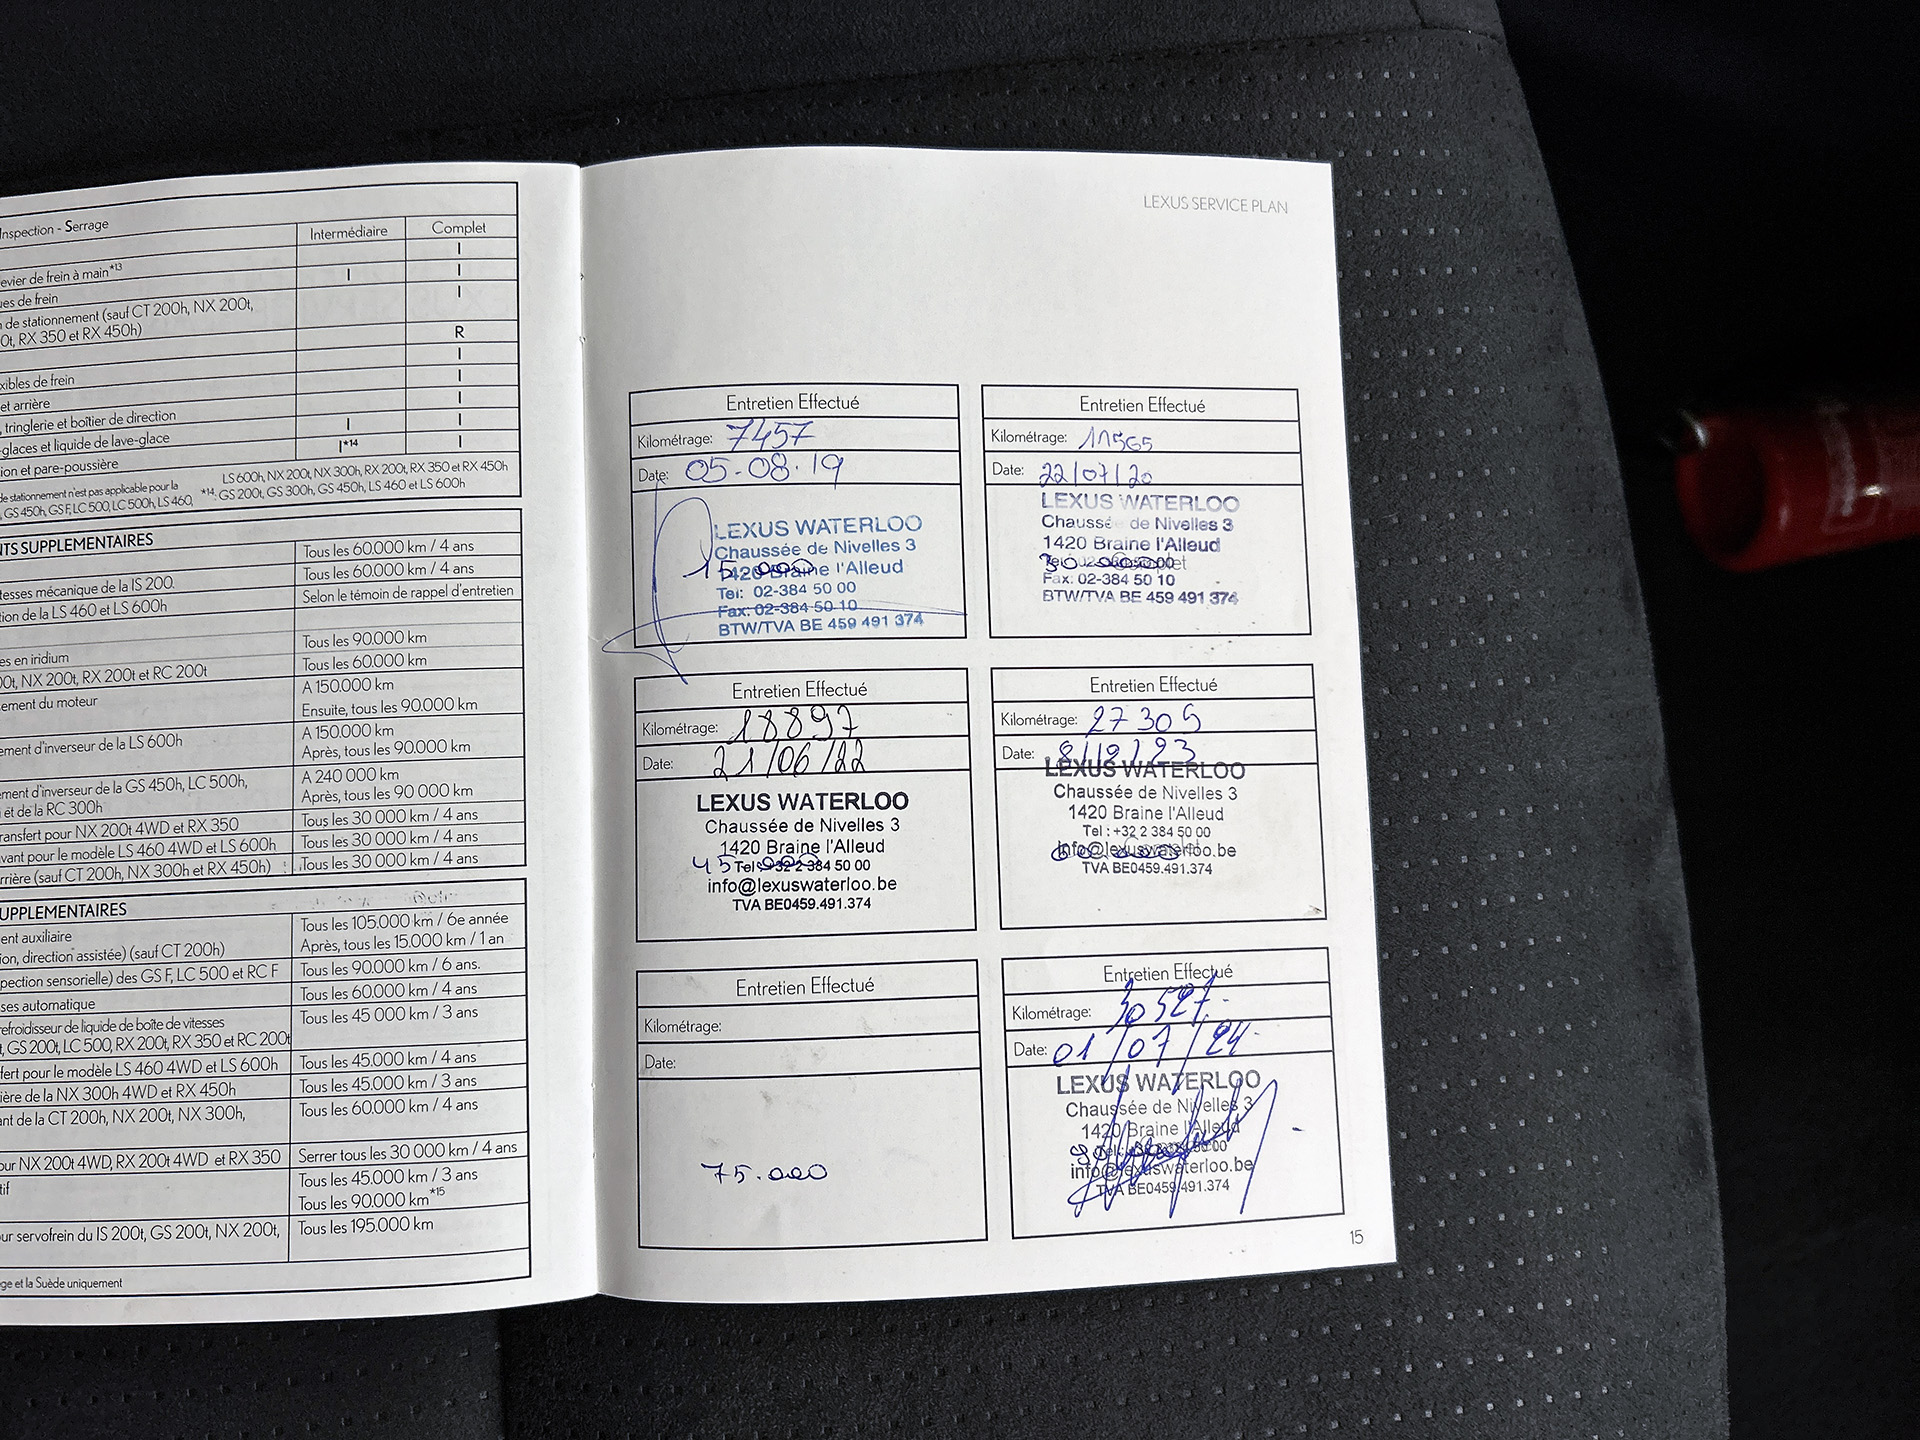 Inspection - Serrage
Intermédiaire
Complet
I
evier de frein à main*13
I
I
ues de frein
I
n de stationnement (sauf CT 200h, NX 200t,
0t, RX 350 et RX 450h)
R
I
xibles de frein
I
et arrière
I
, tringlerie et boîtier de direction
I
I
-glaces et liquide de lave-glace
I*14
I
ion et pare-poussière
LS 600h, NX 200t, NX 300h, RX 200t, RX 350 et RX 450h
de stationnement n'est pas applicable pour la
*14. GS 200t, GS 300h, GS 450h, LS 460 et LS 600h
, GS 450h, GS F, LC 500, LC 500h, LS 460,
NTS SUPPLEMENTAIRES
Tous les 60.000 km / 4 ans
tesses mécanique de la IS 200.
Tous les 60.000 km / 4 ans
tion de la LS 460 et LS 600h
Selon le témoin de rappel d'entretien
Tous les 90.000 km
es en iridium
00t, NX 200t, RX 200t et RC 200t
Tous les 60.000 km
sement du moteur
A 150.000 km
Ensuite, tous les 90.000 km
ement d'inverseur de la LS 600h
A 150.000 km
Après, tous les 90.000 km
ement d'inverseur de la GS 450h, LC 500h,
et de la RC 300h
A 240 000 km
Après, tous les 90 000 km
ransfert pour NX 200t 4WD et RX 350
Tous les 30 000 km / 4 ans
avant pour le modèle LS 460 4WD et LS 600h
Tous les 30 000 km / 4 ans
rrière (sauf CT 200h, NX 300h et RX 450h)
Tous les 30 000 km / 4 ans
SUPPLEMENTAIRES
ent auxiliaire
ion, direction assistée) (sauf CT 200h)
Tous les 105.000 km / 6e année
Après, tous les 15.000 km / 1 an
pection sensorielle) des GS F, LC 500 et RC F
Tous les 90.000 km / 6 ans.
ses automatique
Tous les 60.000 km / 4 ans
efroidisseur de liquide de boîte de vitesses
t, GS 200t, LC 500, RX 200t, RX 350 et RC 200t
Tous les 45 000 km / 3 ans
fert pour le modèle LS 460 4WD et LS 600h
Tous les 45.000 km / 4 ans
ière de la NX 300h 4WD et RX 450h
Tous les 45.000 km / 3 ans
ant de la CT 200h, NX 200t, NX 300h,
Tous les 60.000 km / 4 ans
our NX 200t 4WD, RX 200t 4WD et RX 350
Serrer tous les 30 000 km / 4 ans
tif
Tous les 45.000 km / 3 ans
Tous les 90.000 km*15
ur servofrein du IS 200t, GS 200t, NX 200t,
Tous les 195.000 km
ge et la Suède uniquement
LEXUS SERVICE PLAN
Entretien Effectué
Kilométrage: 7457
Date: 05-08-19
LEXUS WATERLOO
Chaussée de Nivelles 3
1420 Braine l'Alleud
15.000
Tel: 02-384 50 00
Fax: 02-384 50 10
BTW/TVA BE 459 491 374
Entretien Effectué
Kilométrage: 11565
Date: 22/07/20
LEXUS WATERLOO
Chaussée de Nivelles 3
1420 Braine l'Alleud
30.000
Fax: 02-384 50 10
BTW/TVA BE 459 491 374
Entretien Effectué
Kilométrage: 18897
Date: 21/06/22
LEXUS WATERLOO
Chaussée de Nivelles 3
1420 Braine l'Alleud
45.000
Tel: +32 2 384 50 00
info@lexuswaterloo.be
TVA BE0459.491.374
Entretien Effectué
Kilométrage: 27305
Date: 8/12/23
LEXUS WATERLOO
Chaussée de Nivelles 3
1420 Braine l'Alleud
Tel : +32 2 384 50 00
info@lexuswaterloo.be
60.000
TVA BE0459.491.374
Entretien Effectué
Kilométrage:
Date:
75.000
Entretien Effectué
Kilométrage: 30527-
Date: 01/07/24-
LEXUS WATERLOO
Chaussée de Nivelles 3
1420 Braine l'Alleud
info@lexuswaterloo.be
TVA BE0459.491.374
15